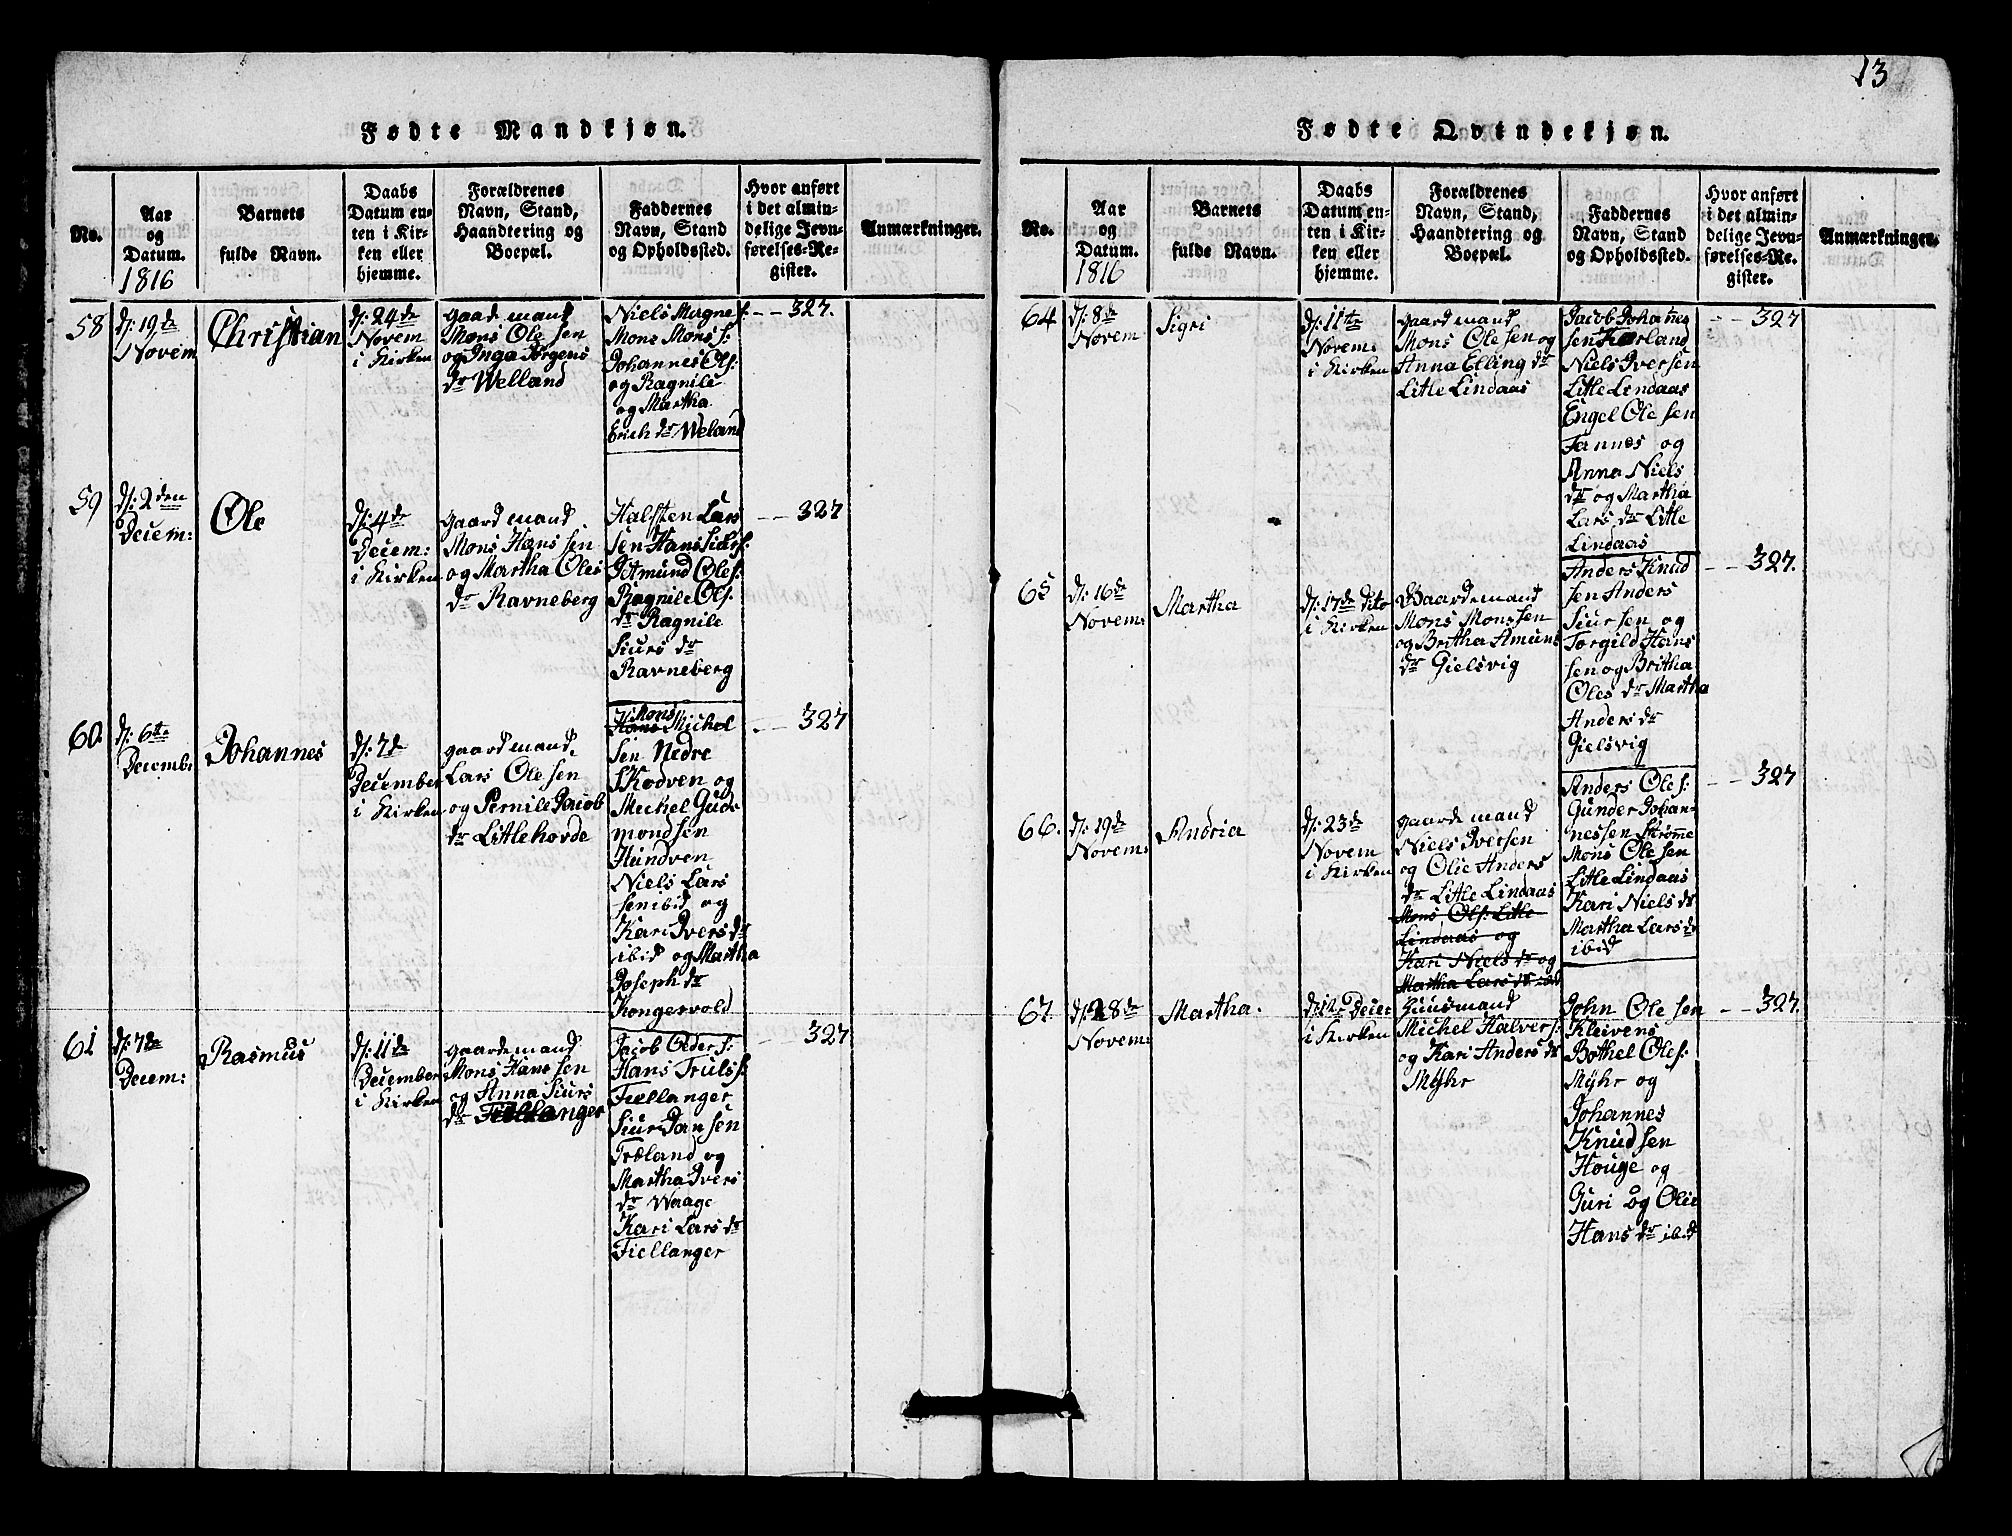 13
Fødte Mandkjøn.
No.
Aar
og
Datum.
1816
Barnets
fulde Navn.
Daabs
Datum en-
ten i Kir-
ken eller
hjemme.
Forældrenes
Navn, Stand,
Haandtering og
Boepæl.
Faddernes
Navn, Stand
og Opholdssted.
Hvor anført
i det almin-
delige Jevn-
førelses-Re-
gister.
Anmærkninger.
58
d: 19de
Novem
Christian
d: 24de
Novem
i Kirken
gaard mand
Mons Ole sen
og Inga Jørgens
dr Welland
Niels Magnes:
Mons Mons s:
Johannes Ols:
og Ragnile
og Martha
Erich dr Weland
327.
59
d: 2den
Decem:
Ole
d: 4de
Decem:
i Kirken
gaard mand
Mons Hans sen
og Martha Oles
dr Ravneberg
Halsten Lars
sen Hans
Amund Oles:
Ragnile Ols:
dr Ragnile
Siurs dr
Ravneberg
327
60.
d: 6te
Decemb:
Johannes
d: 7d
December
i Kirken
gaard mand
Lars Ole sen
og Pernile Jacob
dr Litlehovde
Mons
Hans Michel
sen Nedre
Skodven og
Michel Gud
mondsen
Hundven
Niels Lars
sen ibid og
Kari Ivers dr
ibid og Martha
Joseph dr
Kongervold
327
61
d: 7de
Decem:
Rasmus
d: 11de
December
i Kirken
gaarde mand
Mons Hans sen
og Anna Siurs
dr Fiellanger
Jacob Olders:
Hans Truls s:
Fiellanger
Siur Jansen
Træland og
Martha Ivers
dr Waage
Kari Lars dr
Fiellanger
327
Fødte Qvindekjøn.
No.
Aar
og
Datum.
1816
Barnets
fulde Navn.
Daabs
Datum en-
ten i Kir-
ken eller
hjemme.
Forældrenes
Navn, Stand,
Haandtering og
Boepæl.
Faddernes
Navn, Stand
og Opholdssted.
Hvor anført
i det almin-
delige Jevn-
førelses-Re-
gister.
Anmærkninger.
64
d: 8de
Novem
Sigri
d: 11te
Novem:
i Kirken
gaard mand
Mons Ole sen og
Anna Elling dr
Litle Lindaas
Jacob Johañes
sen
Niels Iversen
Litle Lindaas
Engel Ole sen
Fannes og
Anna Niels
dr og Martha
Lars dr Litle
Lindaas
327
65
d: 16de
Novem:
Martha
d: 17de dito
i Kirken
Gaardemand
Mons Mons sen
og Britha Amun
dr Gielsvig
Anders Knud
sen Anders
Siursen og
Torgild Hans
sen og Britha
Oles dr Martha
Anders dr
Gielsvig
327.
66.
d: 19de
Novem:
Andria
d: 23de
Novem
i Kirken
gaarde mand
Niels Iversen
og Olie Anders
dr Litle Lindaas
Mons Ols: Litle
Lindaas og
Kari Niels dr og
Martha Lars dr ibid
Anders Oles:
Gunder Johan-
nessen Strøm̄e
Mons Ole sen
Litle Lindaas
Kari Niels dr
Martha Lars dr
ibid
327
67.
d: 28de
Novem:
Martha.
d: 1ste Decer
i Kirken
Huusmand
Michel Halvers:
og Kari Anders dr
Myhr
John Ole sen
Kleivens
Bothel Oles:
Myhr og
Johannes
Knud sen
Houge og
Guri og Olie
Hans dr ibid
327.